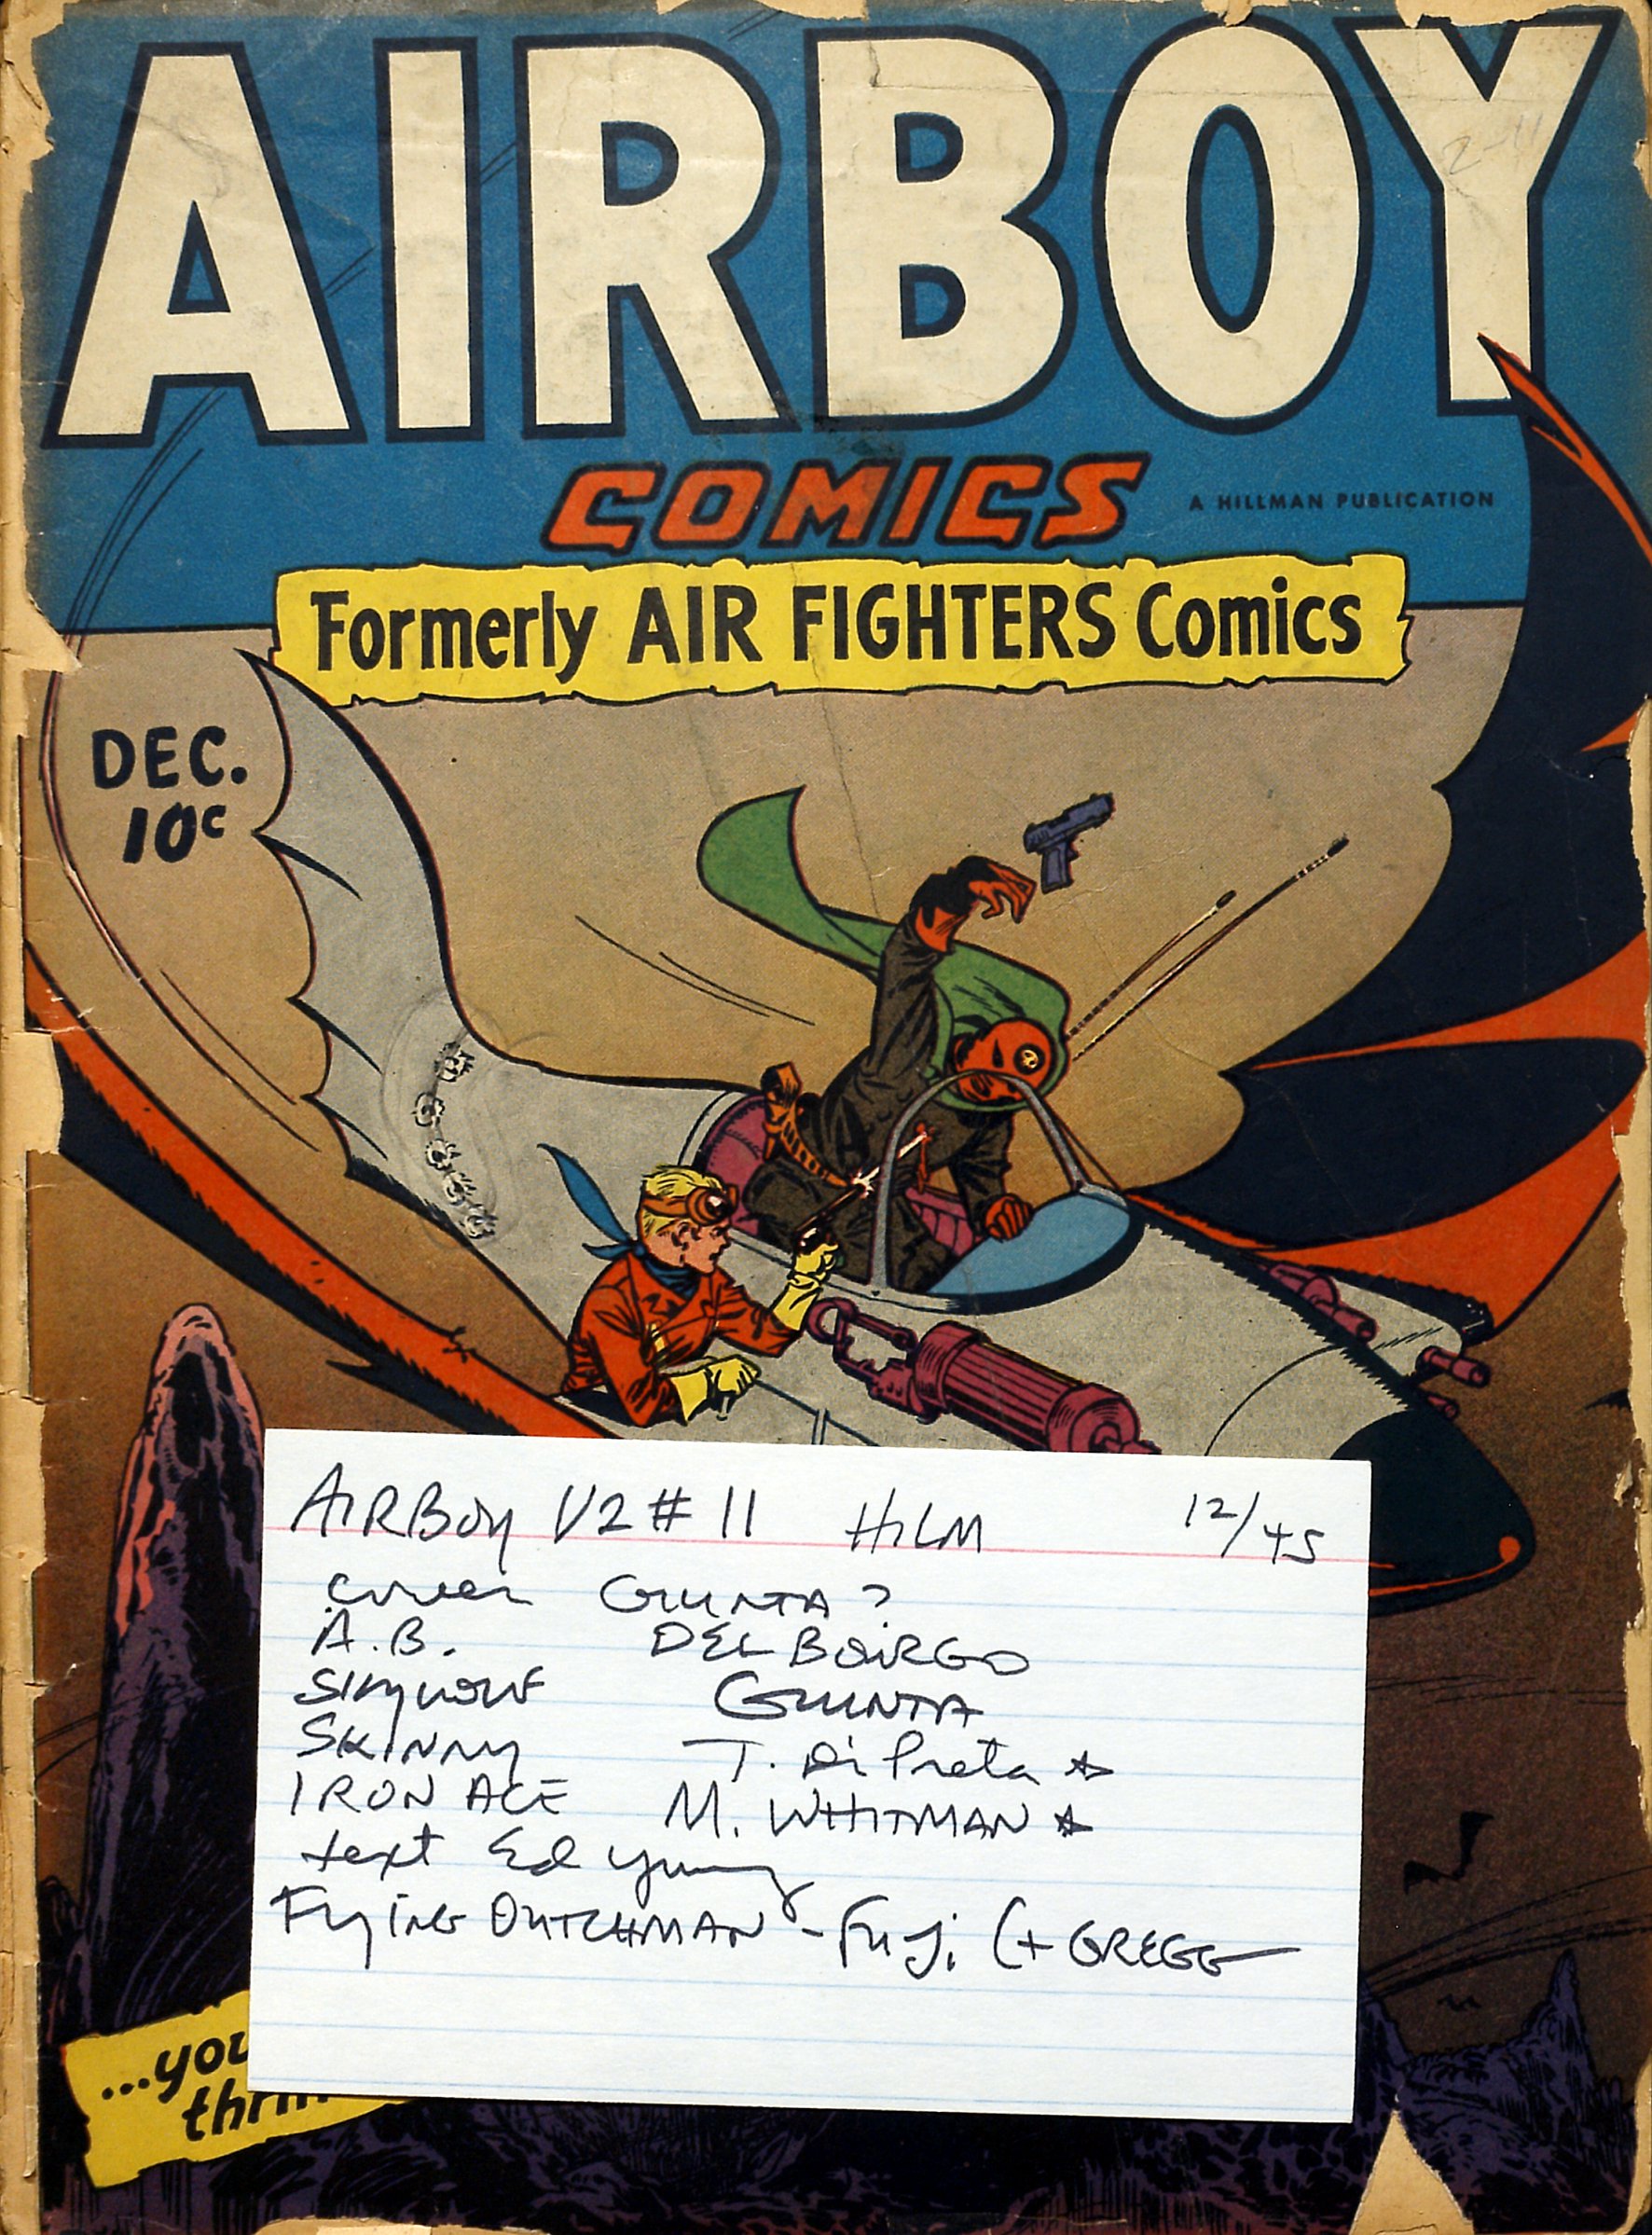 AIRBOY
COMICS
A HILLMAN PUBLICATION
2-11
Formerly AIR FIGHTERS Comics
DEC.
10c
AIRBOY V2 # 11 HILM 12/45
cover GIUNTA?
A.B. DEL BOURGO
Skywolf GIUNTA
SKINNY T. Di Preta ☆
IRON ACE M. WHITMAN ☆
text Ed
Flying DUTCHMAN - Fuji (+ GREGG
...you